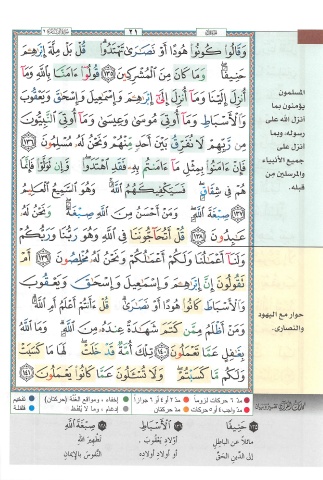 ٢١
وَقَالُوا۟ كُونُوا۟ هُودًا أَوْ نَصَـٰرَىٰ تَهْتَدُوا۟ ۗ قُلْ بَلْ مِلَّةَ إِبْرَٰهِـۧمَ
حَنِيفًا ۖ وَمَا كَانَ مِنَ ٱلْمُشْرِكِينَ ١٣٥ قُولُوٓا۟ ءَامَنَّا بِٱللَّهِ وَمَآ
أُنزِلَ إِلَيْنَا وَمَآ أُنزِلَ إِلَىٰٓ إِبْرَٰهِـۧمَ وَإِسْمَـٰعِيلَ وَإِسْحَـٰقَ وَيَعْقُوبَ
وَٱلْأَسْبَاطِ وَمَآ أُوتِىَ مُوسَىٰ وَعِيسَىٰ وَمَآ أُوتِىَ ٱلنَّبِيُّونَ
مِن رَّبِّهِمْ لَا نُفَرِّقُ بَيْنَ أَحَدٍ مِّنْهُمْ وَنَحْنُ لَهُۥ مُسْلِمُونَ ١٣٦
فَإِنْ ءَامَنُوا۟ بِمِثْلِ مَآ ءَامَنتُم بِهِۦ فَقَدِ ٱهْتَدَوا۟ ۖ وَّإِن تَوَلَّوْا۟ فَإِنَّمَا
هُمْ فِى شِقَاقٍ ۖ فَسَيَكْفِيكَهُمُ ٱللَّهُ ۚ وَهُوَ ٱلسَّمِيعُ ٱلْعَلِيمُ
١٣٧ صِبْغَةَ ٱللَّهِ ۖ وَمَنْ أَحْسَنُ مِنَ ٱللَّهِ صِبْغَةً ۖ وَنَحْنُ لَهُۥ
عَـٰبِدُونَ ١٣٨ قُلْ أَتُحَآجُّونَنَا فِى ٱللَّهِ وَهُوَ رَبُّنَا وَرَبُّكُمْ
وَلَنَآ أَعْمَـٰلُنَا وَلَكُمْ أَعْمَـٰلُكُمْ وَنَحْنُ لَهُۥ مُخْلِصُونَ ١٣٩ أَمْ
تَقُولُونَ إِنَّ إِبْرَٰهِـۧمَ وَإِسْمَـٰعِيلَ وَإِسْحَـٰقَ وَيَعْقُوبَ
وَٱلْأَسْبَاطَ كَانُوا۟ هُودًا أَوْ نَصَـٰرَىٰ ۗ قُلْ ءَأَنتُمْ أَعْلَمُ أَمِ ٱللَّهُ ۗ
وَمَنْ أَظْلَمُ مِمَّن كَتَمَ شَهَـٰدَةً عِندَهُۥ مِنَ ٱللَّهِ ۗ وَمَا ٱللَّهُ
بِغَـٰفِلٍ عَمَّا تَعْمَلُونَ ١٤٠ تِلْكَ أُمَّةٌ قَدْ خَلَتْ ۖ لَهَا مَا كَسَبَتْ
وَلَكُم مَّا كَسَبْتُمْ ۖ وَلَا تُسْـَٔلُونَ عَمَّا كَانُوا۟ يَعْمَلُونَ ١٤١
المسلمون
يؤمنون بما
أنزل الله على
رسوله، وبما
أنزل على
جميع الأنبياء
والمرسلين من
قبله.
حوار مع اليهود
والنصارى.
مدّ ٦ حركات لزوماً
مدّ ٢ أو ٤ أو ٦ جوازاً
إخفاء، ومواقع الغُنَّة (حركتان)
تفخيم
مدّ واجب ٤ أو ٥ حركات
مدّ حركتان
إدغام، وما لا يُلفَظ
قلقلة
١٣٥ حَنِيفًا
مائلاً عن الباطِلِ
إلى الدِّينِ الحَقِّ
١٣٦ الأَسْبَاطِ
أَوْلادِ يَعْقُوبَ.
أو أولادِ أولادِهِ
١٣٨ صِبْغَةَ اللَّهِ
تَطْهِيرَ اللَّهِ
النُّفُوسَ بِالإِيمَانِ